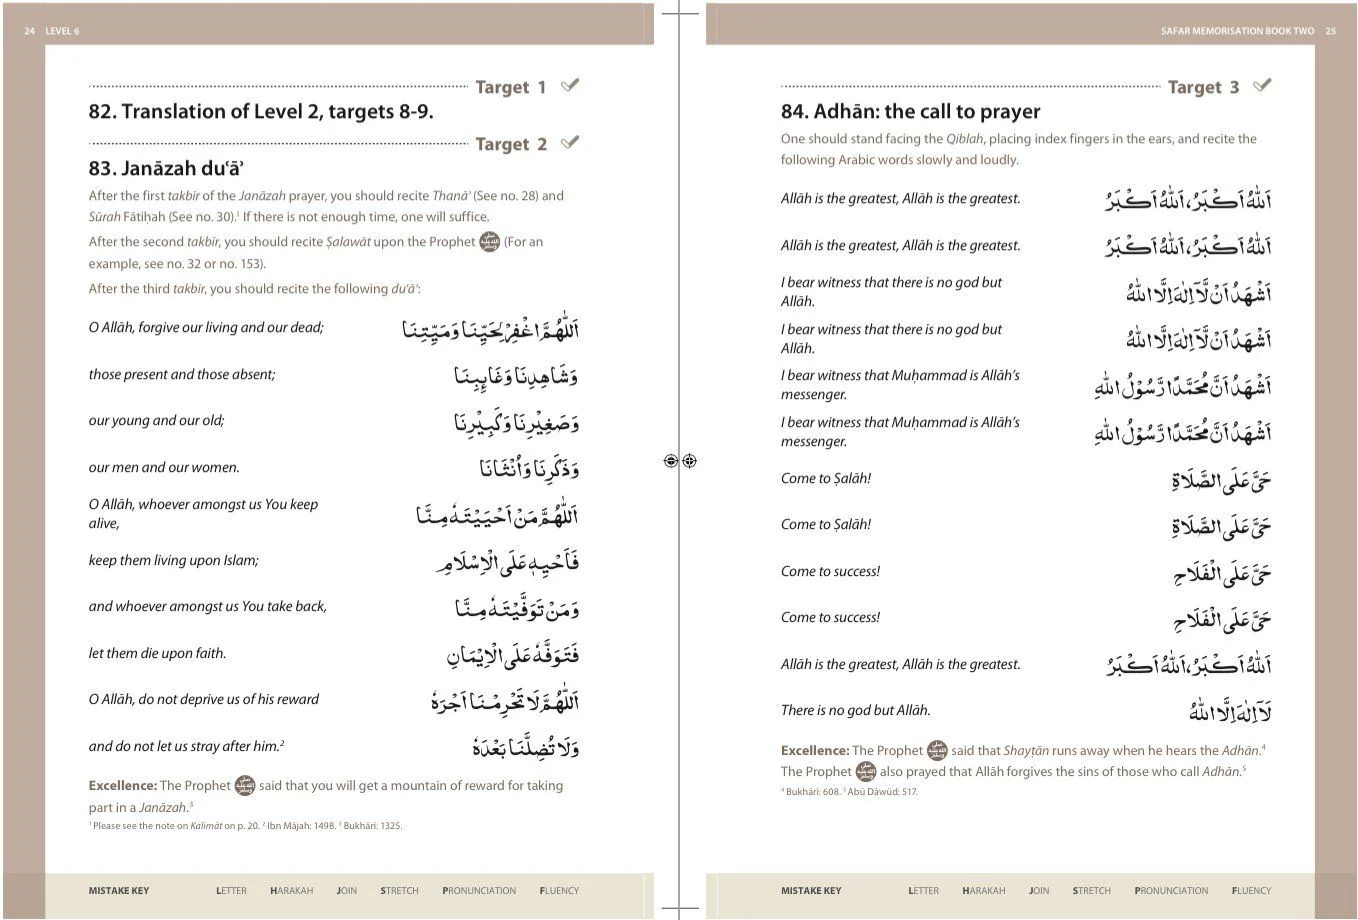 24 LEVEL 6
Target 1
82. Translation of Level 2, targets 8-9.
Target 2
83. Janāzah duʿāʾ
After the first takbīr of the Janāzah prayer, you should recite Thanāʾ (See no. 28) and
Sūrah Fātiḥah (See no. 30).¹ If there is not enough time, one will suffice.
After the second takbīr, you should recite Ṣalawāt upon the Prophet ﷺ (For an
example, see no. 32 or no. 153).
After the third takbīr, you should recite the following duʿāʾ:
O Allāh, forgive our living and our dead; اَللّٰهُمَّ اغْفِرْ لِحَيِّنَا وَمَيِّتِنَا
those present and those absent; وَشَاهِدِنَا وَغَائِبِنَا
our young and our old; وَصَغِيْرِنَا وَكَبِيْرِنَا
our men and our women. وَذَكَرِنَا وَاُنْثَانَا
O Allāh, whoever amongst us You keep
alive, اَللّٰهُمَّ مَنْ اَحْيَيْتَهٗ مِنَّا
keep them living upon Islam; فَاَحْيِهٖ عَلَى الْاِسْلَامِ
and whoever amongst us You take back, وَمَنْ تَوَفَّيْتَهٗ مِنَّا
let them die upon faith. فَتَوَفَّهٗ عَلَى الْاِيْمَانِ
O Allāh, do not deprive us of his reward اَللّٰهُمَّ لَا تَحْرِمْنَا اَجْرَهٗ
and do not let us stray after him.² وَلَا تُضِلَّنَا بَعْدَهٗ
Excellence: The Prophet ﷺ said that you will get a mountain of reward for taking
part in a Janāzah.³
¹ Please see the note on Kalimāt on p. 20. ² Ibn Mājah: 1498. ³ Bukhārī: 1325.
MISTAKE KEY LETTER HARAKAH JOIN STRETCH PRONUNCIATION FLUENCY
SAFAR MEMORISATION BOOK TWO 25
Target 3
84. Adhān: the call to prayer
One should stand facing the Qiblah, placing index fingers in the ears, and recite the
following Arabic words slowly and loudly.
Allāh is the greatest, Allāh is the greatest. اَللّٰهُ اَكْبَرُ، اَللّٰهُ اَكْبَرُ
Allāh is the greatest, Allāh is the greatest. اَللّٰهُ اَكْبَرُ، اَللّٰهُ اَكْبَرُ
I bear witness that there is no god but
Allāh. اَشْهَدُ اَنْ لَّآ اِلٰهَ اِلَّا اللّٰهُ
I bear witness that there is no god but
Allāh. اَشْهَدُ اَنْ لَّآ اِلٰهَ اِلَّا اللّٰهُ
I bear witness that Muḥammad is Allāh’s
messenger. اَشْهَدُ اَنَّ مُحَمَّدًا رَّسُوْلُ اللّٰهِ
I bear witness that Muḥammad is Allāh’s
messenger. اَشْهَدُ اَنَّ مُحَمَّدًا رَّسُوْلُ اللّٰهِ
Come to Ṣalāh! حَيَّ عَلَى الصَّلَاةِ
Come to Ṣalāh! حَيَّ عَلَى الصَّلَاةِ
Come to success! حَيَّ عَلَى الْفَلَاحِ
Come to success! حَيَّ عَلَى الْفَلَاحِ
Allāh is the greatest, Allāh is the greatest. اَللّٰهُ اَكْبَرُ، اَللّٰهُ اَكْبَرُ
There is no god but Allāh. لَآ اِلٰهَ اِلَّا اللّٰهُ
Excellence: The Prophet ﷺ said that Shayṭān runs away when he hears the Adhān.⁴
The Prophet ﷺ also prayed that Allāh forgives the sins of those who call Adhān.⁵
⁴ Bukhārī: 608. ⁵ Abū Dāwūd: 517.
MISTAKE KEY LETTER HARAKAH JOIN STRETCH PRONUNCIATION FLUENCY